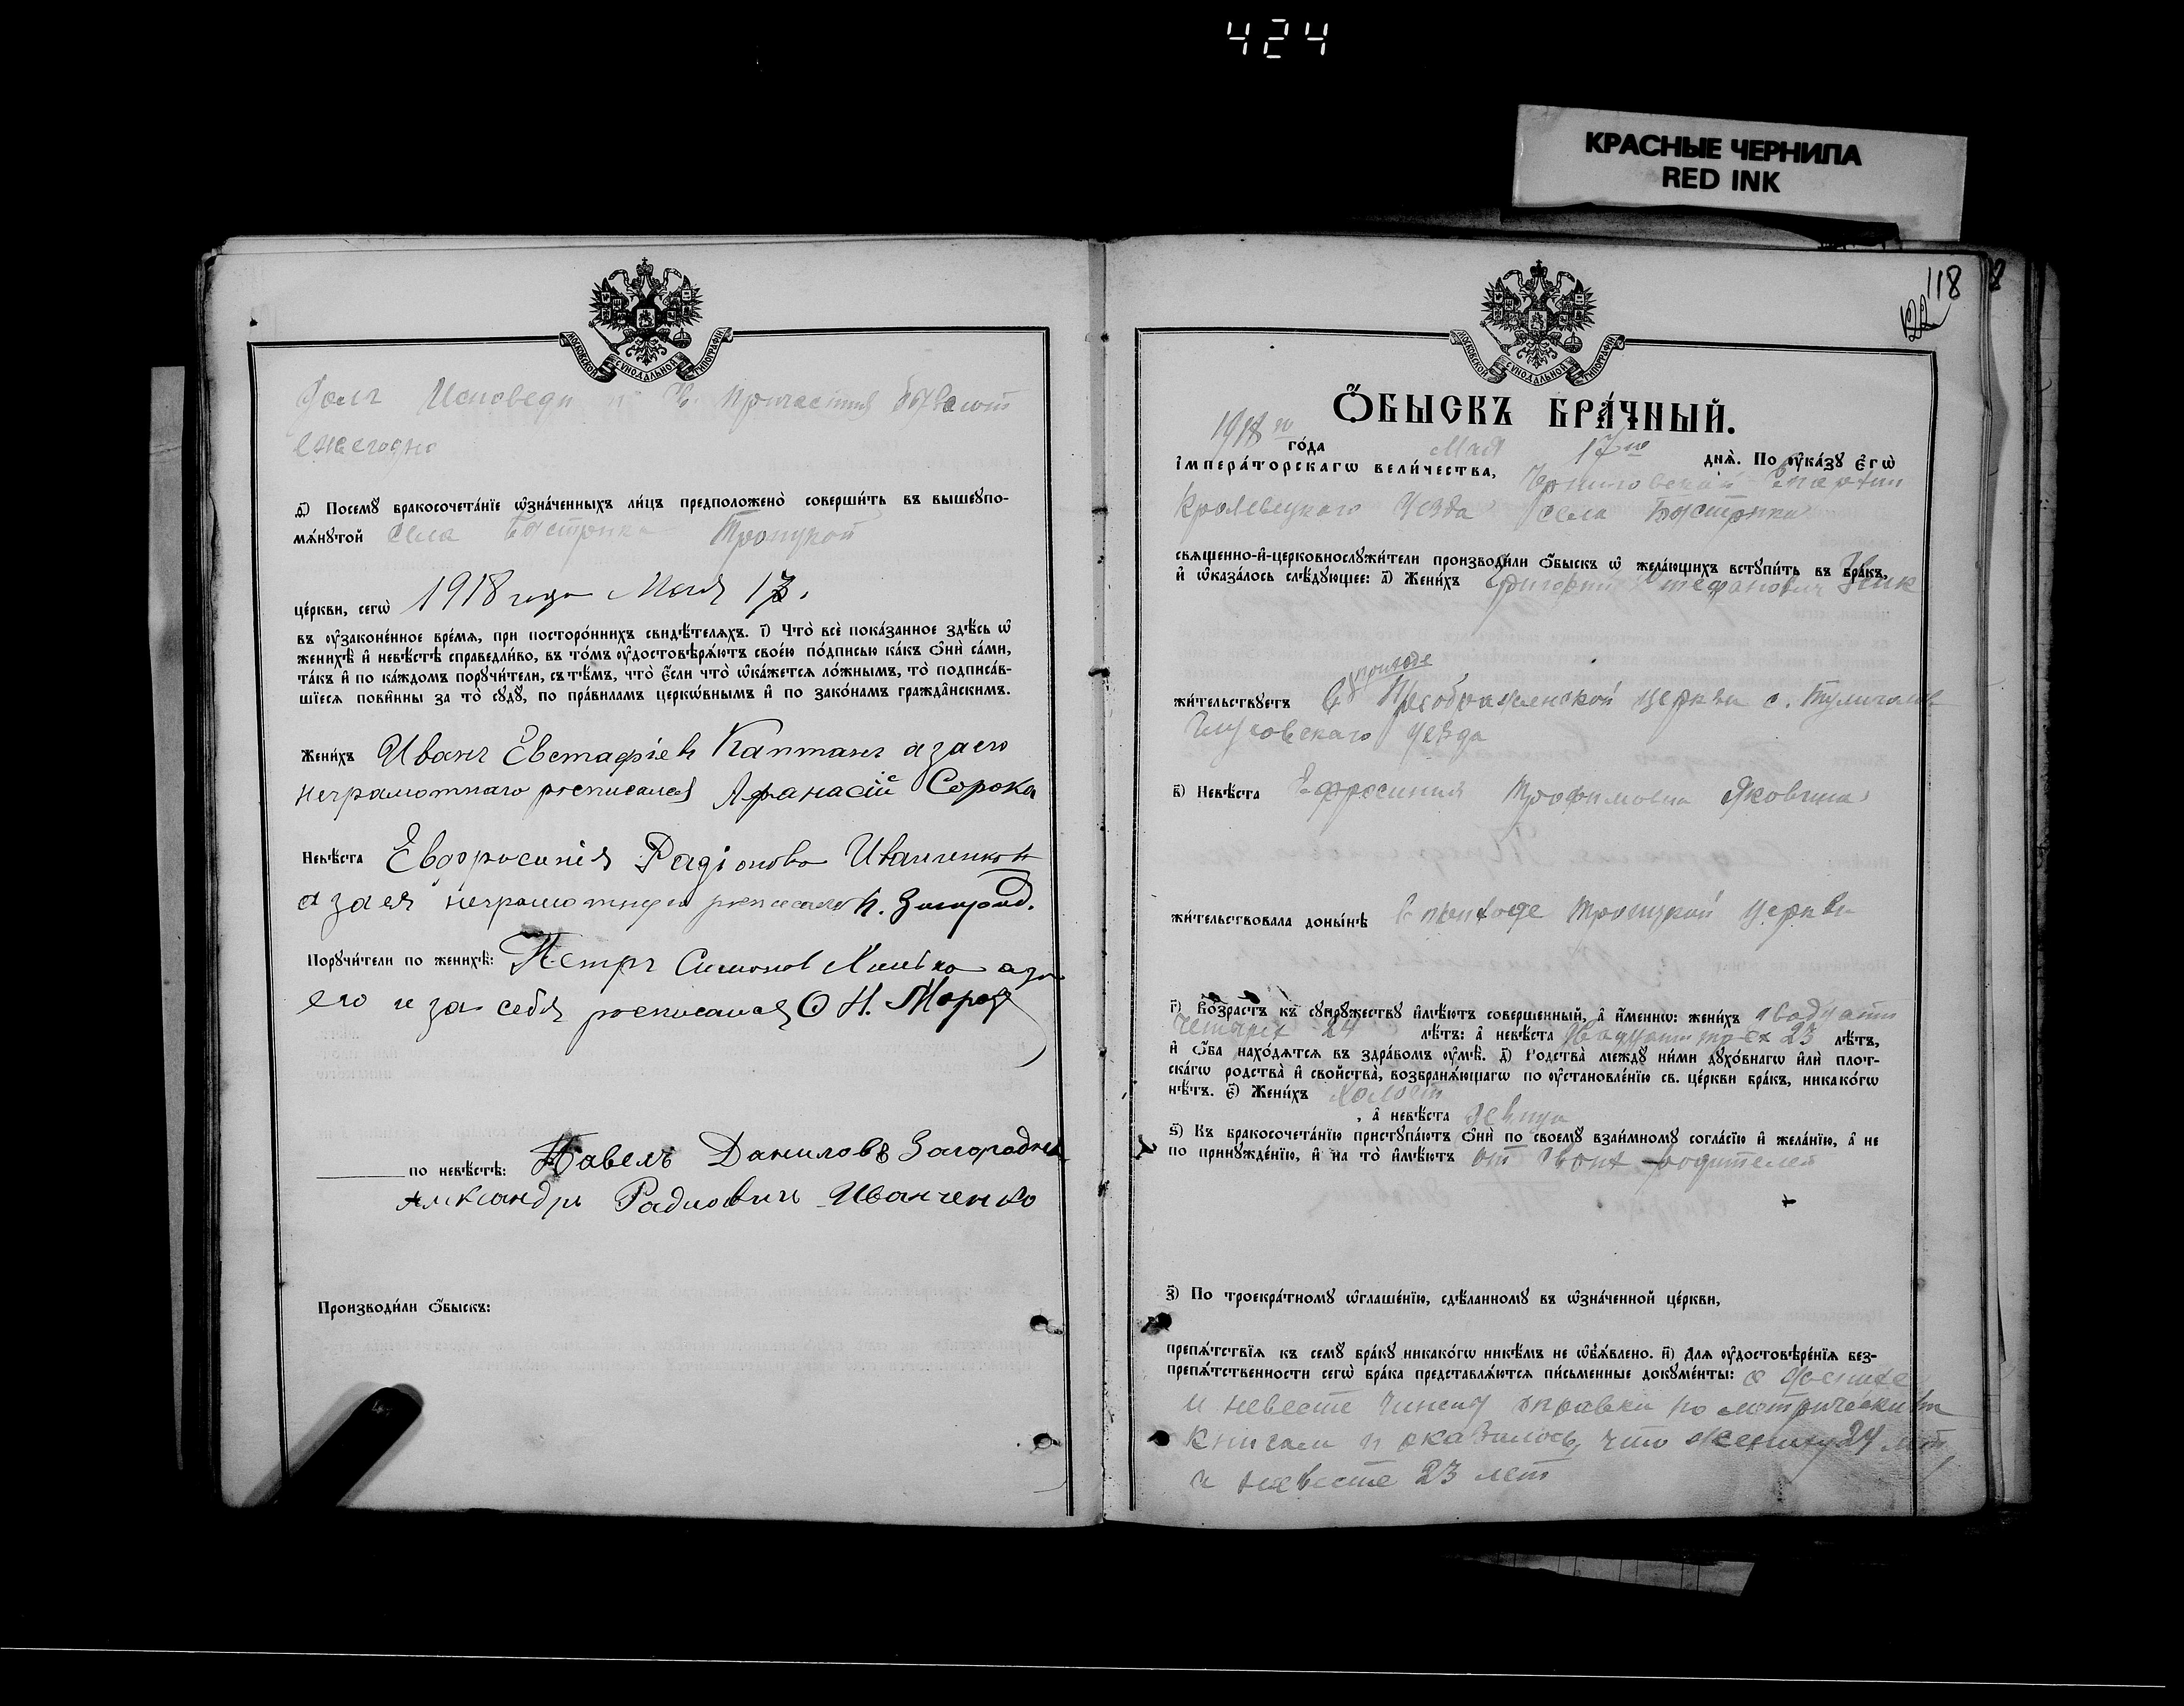 424
КРАСНЫЕ ЧЕРНИЛА
RED INK
МОСКОВСКОЙ СѴНОДАЛЬНОЙ ТИПОГРАФІИ
Исповеди и Св. Причастия бывают
ежегодно
ѳ҃) Посемꙋ бракосочета́нїе ѡ҆зна́ченныхъ ли́цъ предположено̀ соверши́ть въ вышеꙋпо-
мѧ́нꙋтой села Быстрика Троицкой
це́ркви, сегѡ̀ 1918 года Мая 13.
въ ᲂу҆зако́ненное вре́мѧ, при посторо́ннихъ свидѣ́телѧхъ. і҃) Что̀ всѐ пока́занное здѣ́сь ѡ҆
женихѣ̀ и҆ невѣ́стѣ справедли́во, въ то́мъ ᲂу҆достовѣрѧ́ютъ свое́ю по́дписью ка́къ ѻ҆нѝ са́ми,
та́къ и҆ по ка́ждомъ порꙋчи́тели, съ тѣ́мъ, что̀ є҆́сли что̀ ѡ҆ка́жетсѧ ло́жнымъ, то̀ подписа́в-
шїесѧ пови́нны за то̀ сꙋдꙋ̀, по пра́виламъ церко́внымъ и҆ по зако́намъ гражда́нскимъ.
Жени́хъ Иванъ Евстафіевъ Каптанъ а за его
неграмотнаго росписался Афанасій Сорока
Невѣ́ста Евфросинія Радіонова Иванченкова
а за ея неграмотную росписался П. Загород.
Порꙋчи́тели по женихѣ̀: Петръ Симонов а за
его и за себя росписался О Н. Мороз
по невѣ́стѣ: Павелъ Даниловъ Загородній
Александръ Радиовичъ Иванченко
Производи́ли ѻ҆́быскъ:
118
122
МОСКОВСКОЙ СѴНОДАЛЬНОЙ ТИПОГРАФІИ
Ѻ҆́БЫСКЪ БРА́ЧНЫЙ.
1918 го го́да Мая 17 го днѧ̀. По ᲂу҆ка́зꙋ є҆гѡ̀
і҆мпера́торскагѡ вели́чества, Черниговской Епархии
Кролевецкого Уезда села Быстрика
свѧще́нно-и҆-церковнослꙋжи́тели производи́ли ѻ҆́быскъ ѡ҆ жела́ющихъ встꙋпи́ть въ бра́къ,
и҆ ѡ҆каза́лось слѣ́дꙋющее: а҃) Жени́хъ Григорий Стефанович Зеик
жи́тельствꙋетъ в приходе Преображенской церкви с. Тулиголов
Глуховского Уезда
в҃) Невѣ́ста Ефросиния Трофимовна Яковчика
жи́тельствовала доны́нѣ в приходе Троицкой церкви
г҃) Во́зрастъ къ сꙋпрꙋ́жествꙋ и҆мѣ́ютъ соверше́нный, а҆ и҆́меннѡ: жени́хъ двадцати
четырех 24 лѣ́тъ: а҆ невѣ́ста двадцати трех 23 лѣ́тъ,
и҆ ѻ҆́ба нахо́дѧтсѧ въ здра́вомъ ᲂу҆мѣ̀. д҃) Родства̀ междꙋ ни́ми дꙋхо́внагѡ и҆лѝ плот-
ска́гѡ родства̀ и҆ свойства̀, возбранѧ́ющагѡ по ᲂу҆становле́нїю св. це́ркви бра́къ, никако́гѡ
нѣ́тъ. є҃) Жени́хъ холост
, а҆ невѣ́ста девица
ѕ҃) Къ бракосочета́нїю пристꙋпа́ютъ ѻ҆нѝ по своемꙋ̀ взаи́мномꙋ согла́сїю и҆ жела́нїю, а҆ не
по принꙋжде́нїю, и҆ на то̀ и҆мѣ́ютъ от своих родителей
з҃) По троекра́тномꙋ ѡ҆глаше́нїю, сдѣ́ланномꙋ въ ѡ҆зна́ченной це́ркви,
препѧ́тствїѧ къ семꙋ̀ бра́кꙋ никако́гѡ никѣ́мъ не ѡ҆б̾ѧ́влено. и҃) Длѧ ᲂу҆достовѣре́нїѧ без-
препѧ́тственности сегѡ̀ бра́ка представлѧ́ютсѧ пи́сьменные докꙋме́нты: о женихе
и невесте справки по метрическим
книгам и оказалось, что жениху 24 лет
а невесте 23 лет